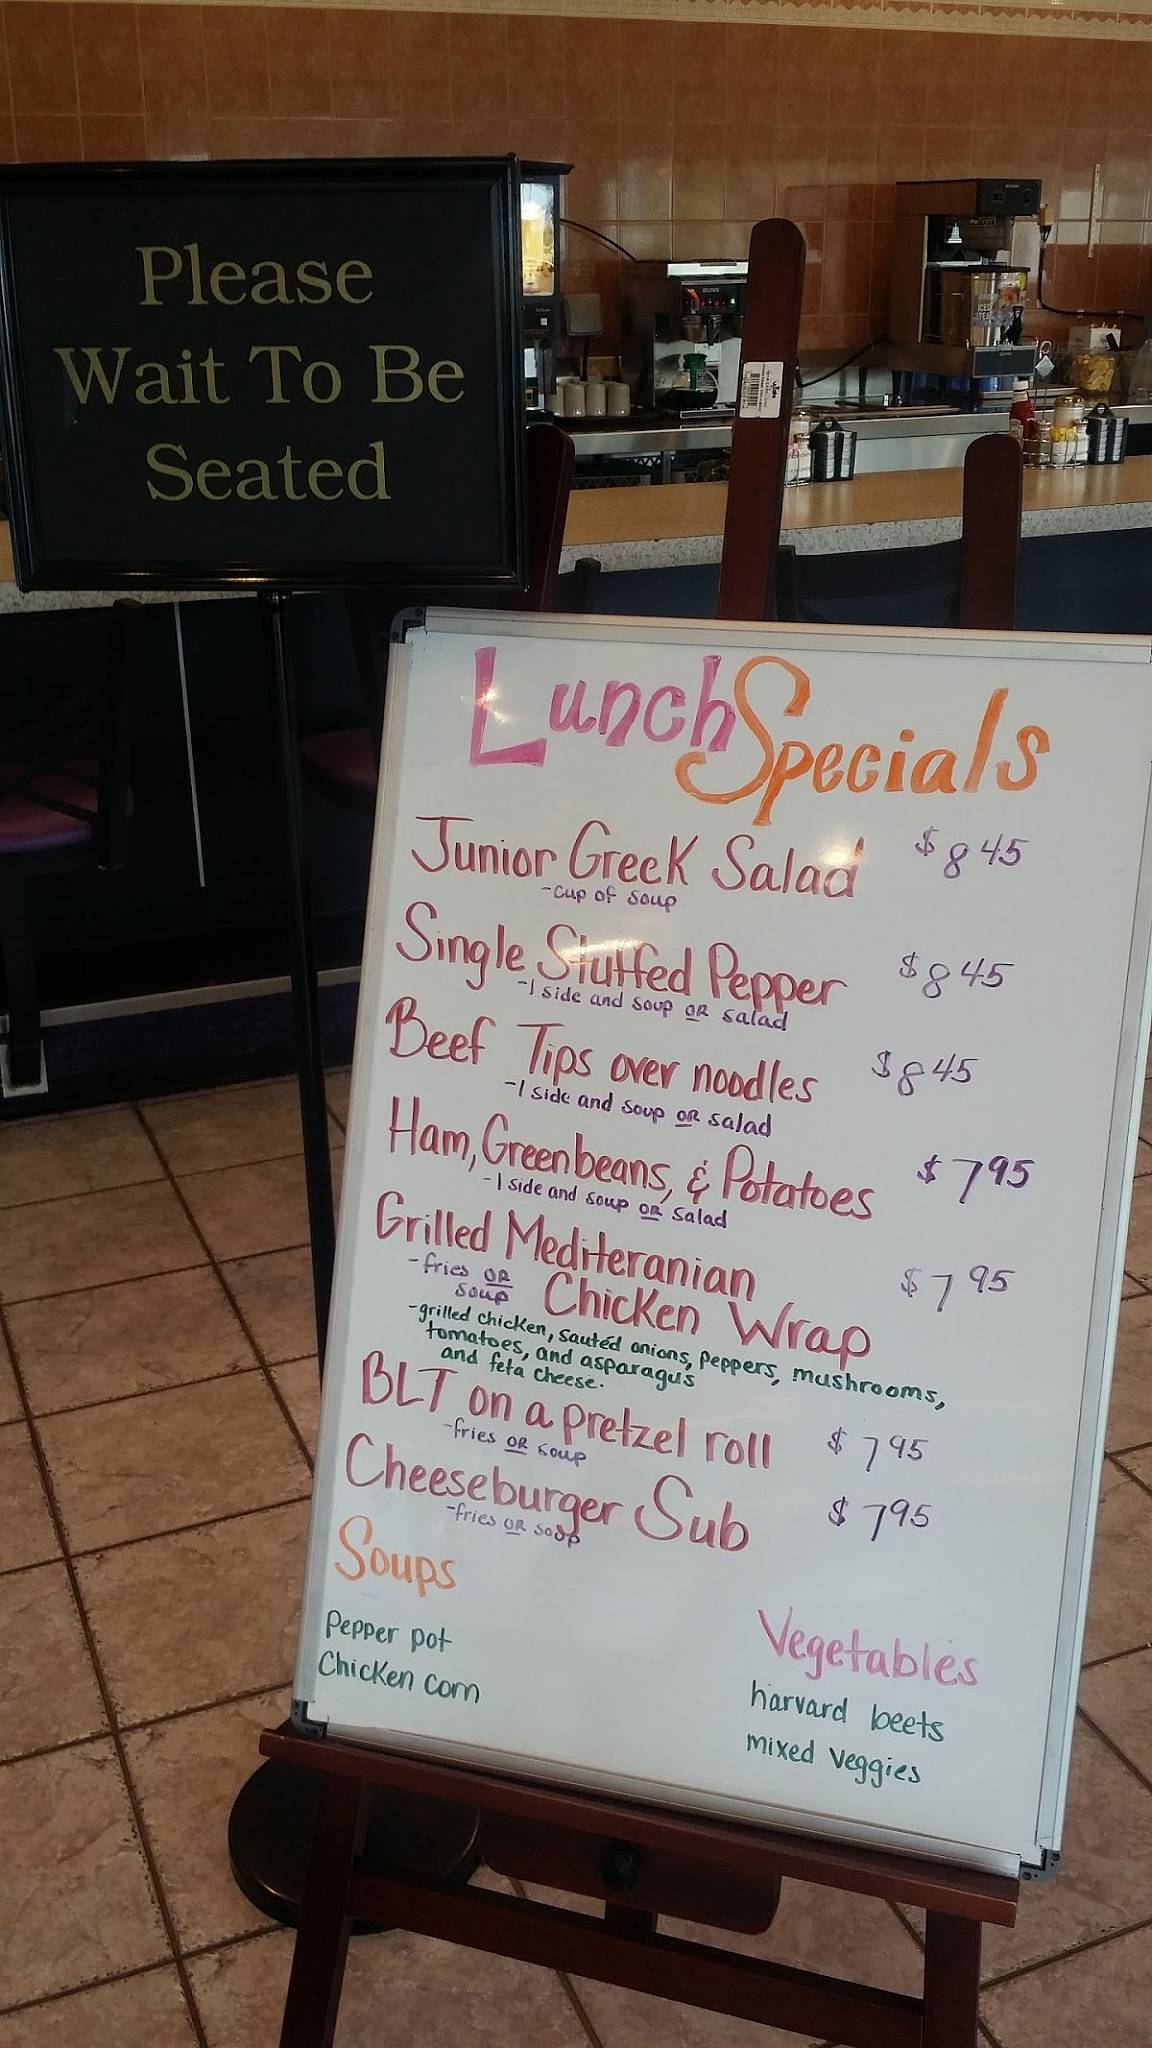 Please
Wait To Be
Seated
Lunch Specials
Junior Greek Salad $8.45
-cup of soup
Single Stuffed Pepper $8.45
-1 side and soup OR salad
Beef Tips over noodles $8.45
-1 side and soup OR salad
Ham, Greenbeans, & Potatoes $7.95
-1 side and soup OR salad
Grilled Mediteranian
-fries OR
soup
Chicken Wrap $7.95
-grilled chicken, sautéd onions, peppers, mushrooms,
tomatoes, and asparagus
and feta cheese.
BLT on a pretzel roll $7.95
-fries OR soup
Cheeseburger Sub $7.95
-fries OR soup
Soups
Pepper pot
Chicken corn
Vegetables
harvard beets
mixed veggies
BUNN
ICED
TEA